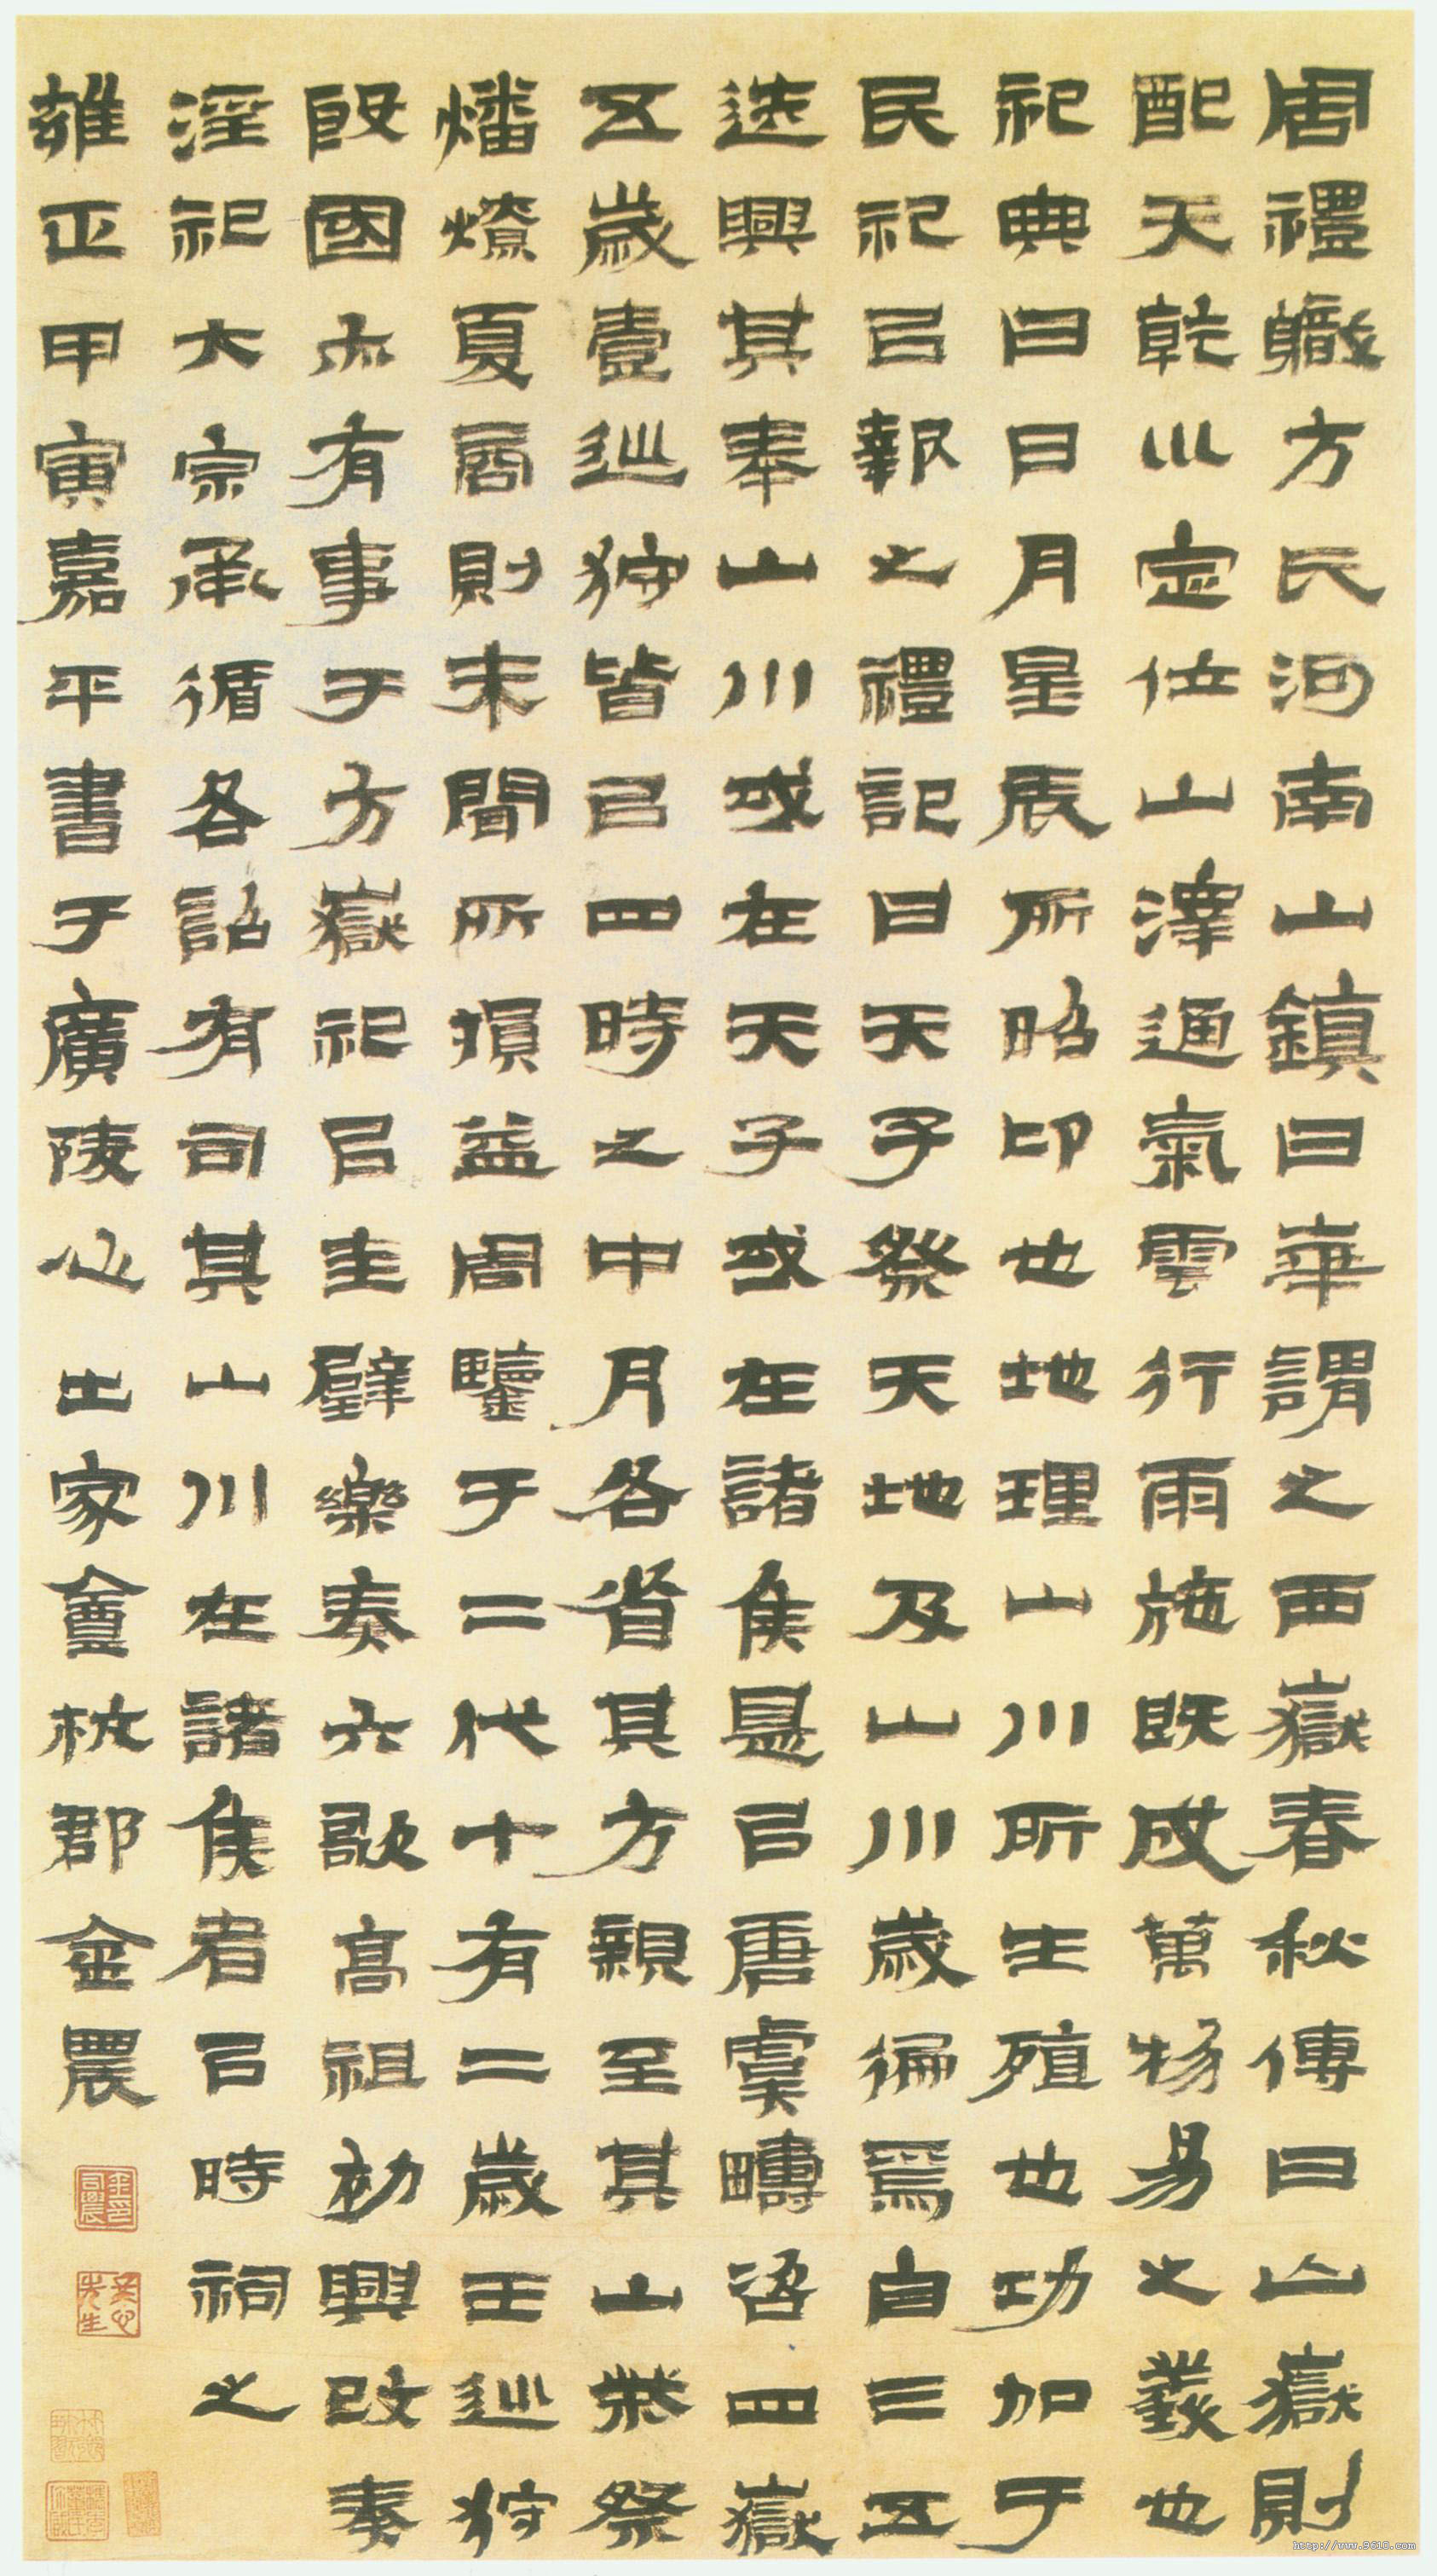 周禮職方氏河南山鎮曰華謂之西嶽春秋傳曰山嶽則
配天乾巛定位山澤通氣雲行雨施既成萬物易之義也
祀典曰日月星辰所昭卬也地理山川所生殖也功加于
民祀㠯報之禮記曰天子祭天地及山川歲徧焉自三五
迭興其奉山川或在天子或在諸侯是㠯唐虞疇咨四嶽
五歲壹巡狩皆㠯四時之中月各省其方親至其山柴祭
燔燎夏商則未聞所損益周鑒于二代十有二歲王巡狩
殷國亦有事于方嶽祀㠯圭璧樂奏六歌高祖初興改秦
淫祀大宗承循各詔有司其山川在諸侯者㠯時祠之
雍正甲寅嘉平書于廣陵心出家盦杭郡金農
金印司農
先生
http://www.9610.com